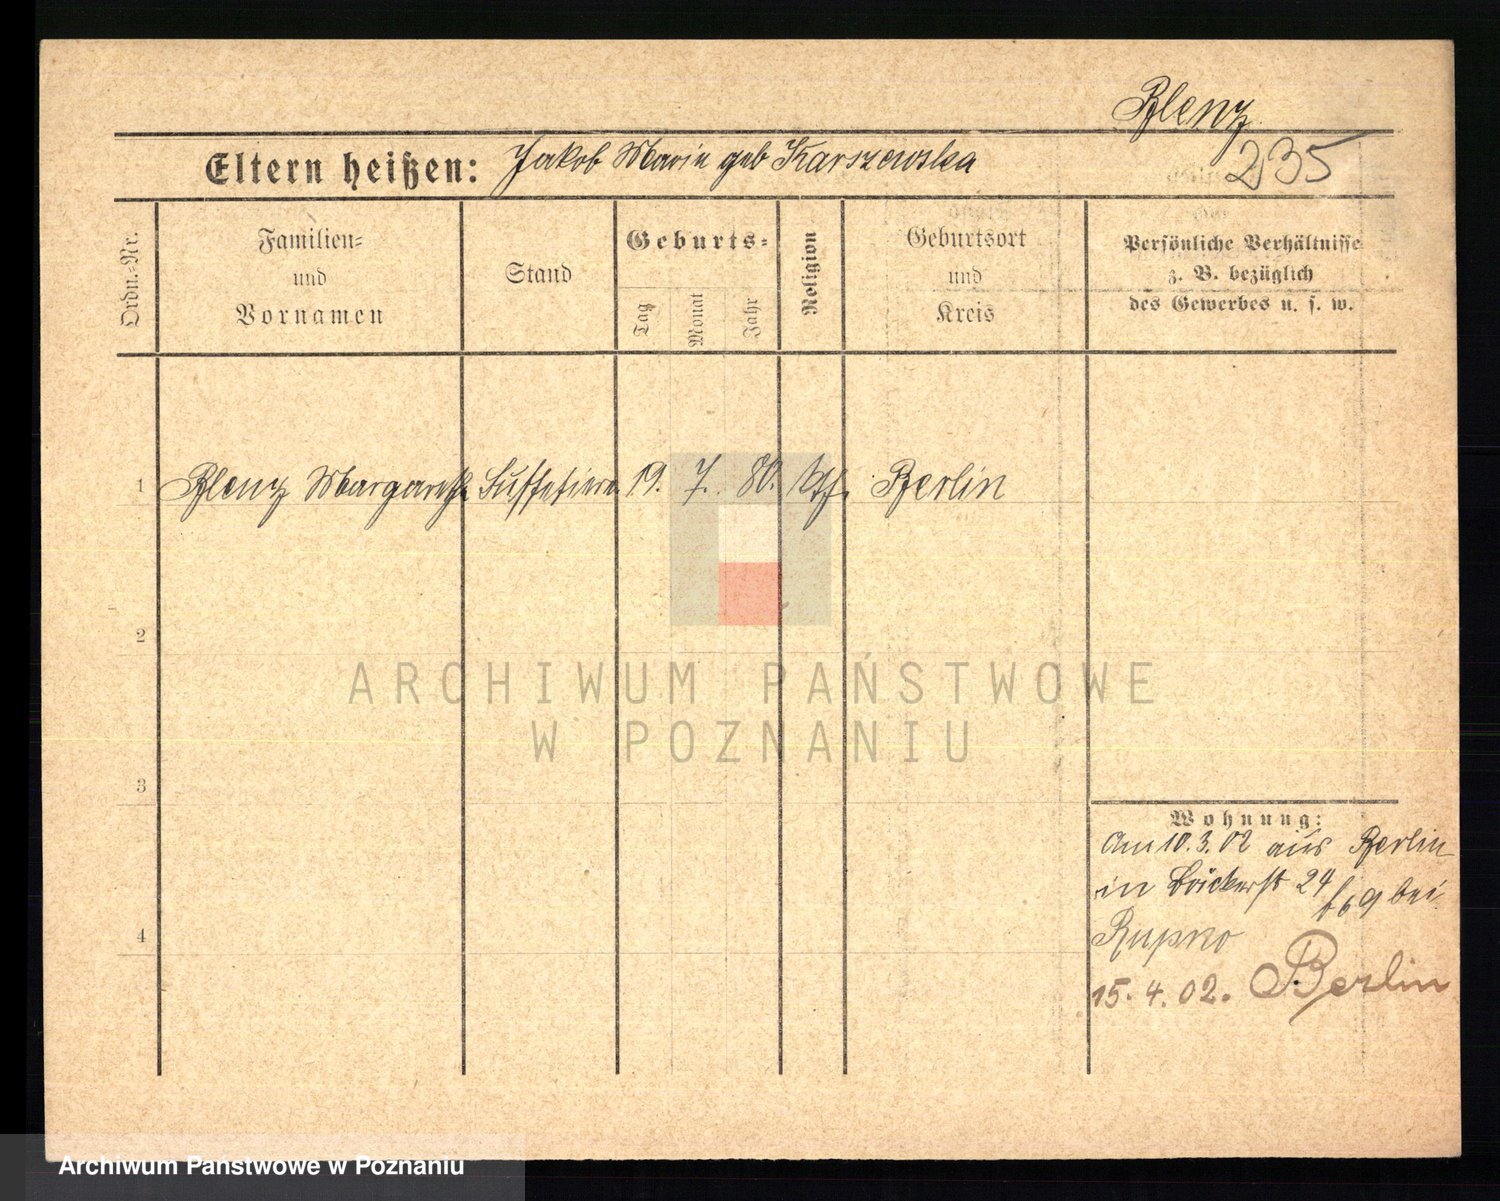 Blenz
235
Eltern heißen: Jakob Marie geb Karszewska
Ordn.-Nr.
Familien-
und
Vornamen
Stand
Geburts-
Tag
Monat
Jahr
Religion
Geburtsort
und
Kreis
Persönliche Verhältnisse
z. B. bezüglich
des Gewerbes u. s. w.
1 Blenz Margarethe 19. 7. 80. kth. Berlin
2
ARCHIWUM PAŃSTWOWE
W POZNANIU
3
Wohnung:
Am 10.3.02 aus Berlin
in Bäckerst 24 bei
4
15. 4. 02. Berlin
Archiwum Państwowe w Poznaniu